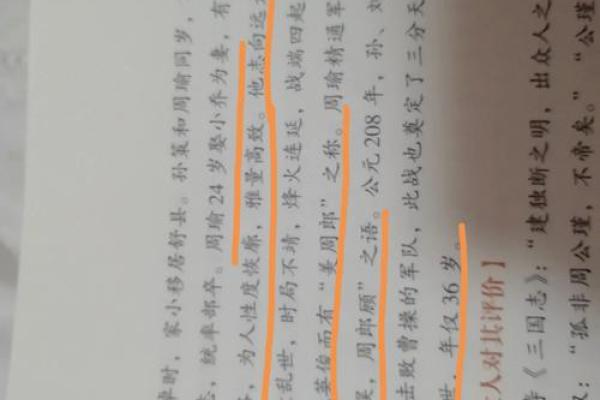 时，家小移居舒县。孙策和周瑜同岁，
，统率部卒。周瑜24岁娶小乔为妻，有
，为人性度恢廓，雅量高致。他志向远
乱世，时局不靖，烽火连延，战端四起
英俊而有“美周郎”之称。周瑜精通军
，周郎顾”之语。公元208年，孙、刘
击败曹操的军队，此战也奠定了三分天
世，年仅36岁。
人对其评价】
《三国志》：“建独断之明，出众人之
：“孤非周公瑾，不帝矣。”“公瑾